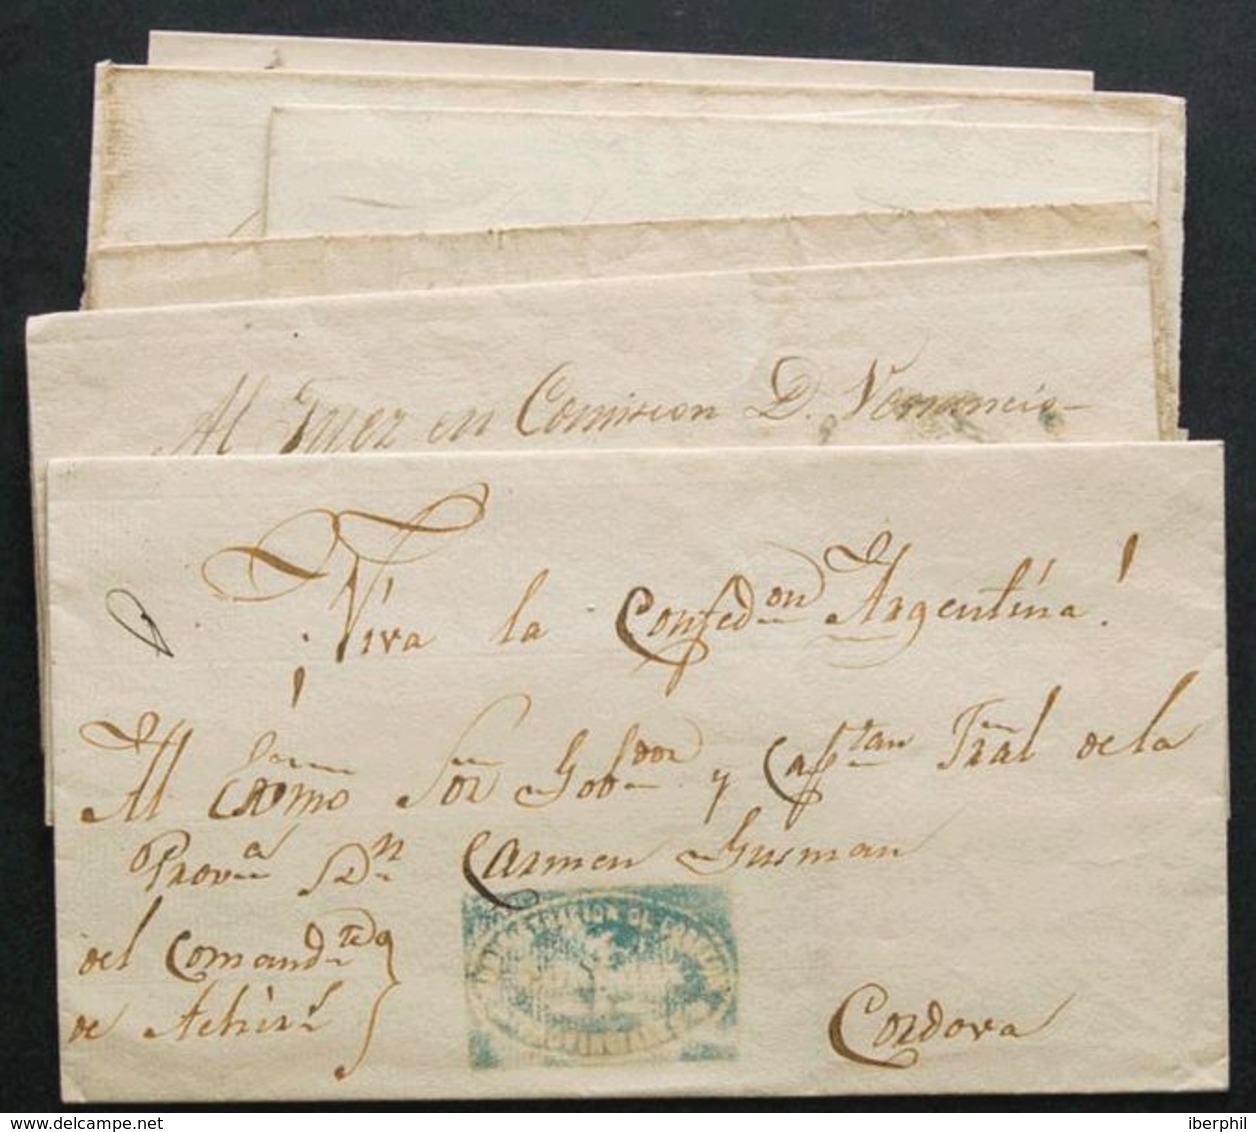 Al Juez en Comision D. Venancio
¡Viva la Confedon Argentina!
Al Exmo Sor Gobdor y Captan Jral de la
Prova Dn Carmen Gusman
del Comandte
de Achiras
Cordova
ADMINISTRACION DE CORREOS
delcampe.net
iberphil